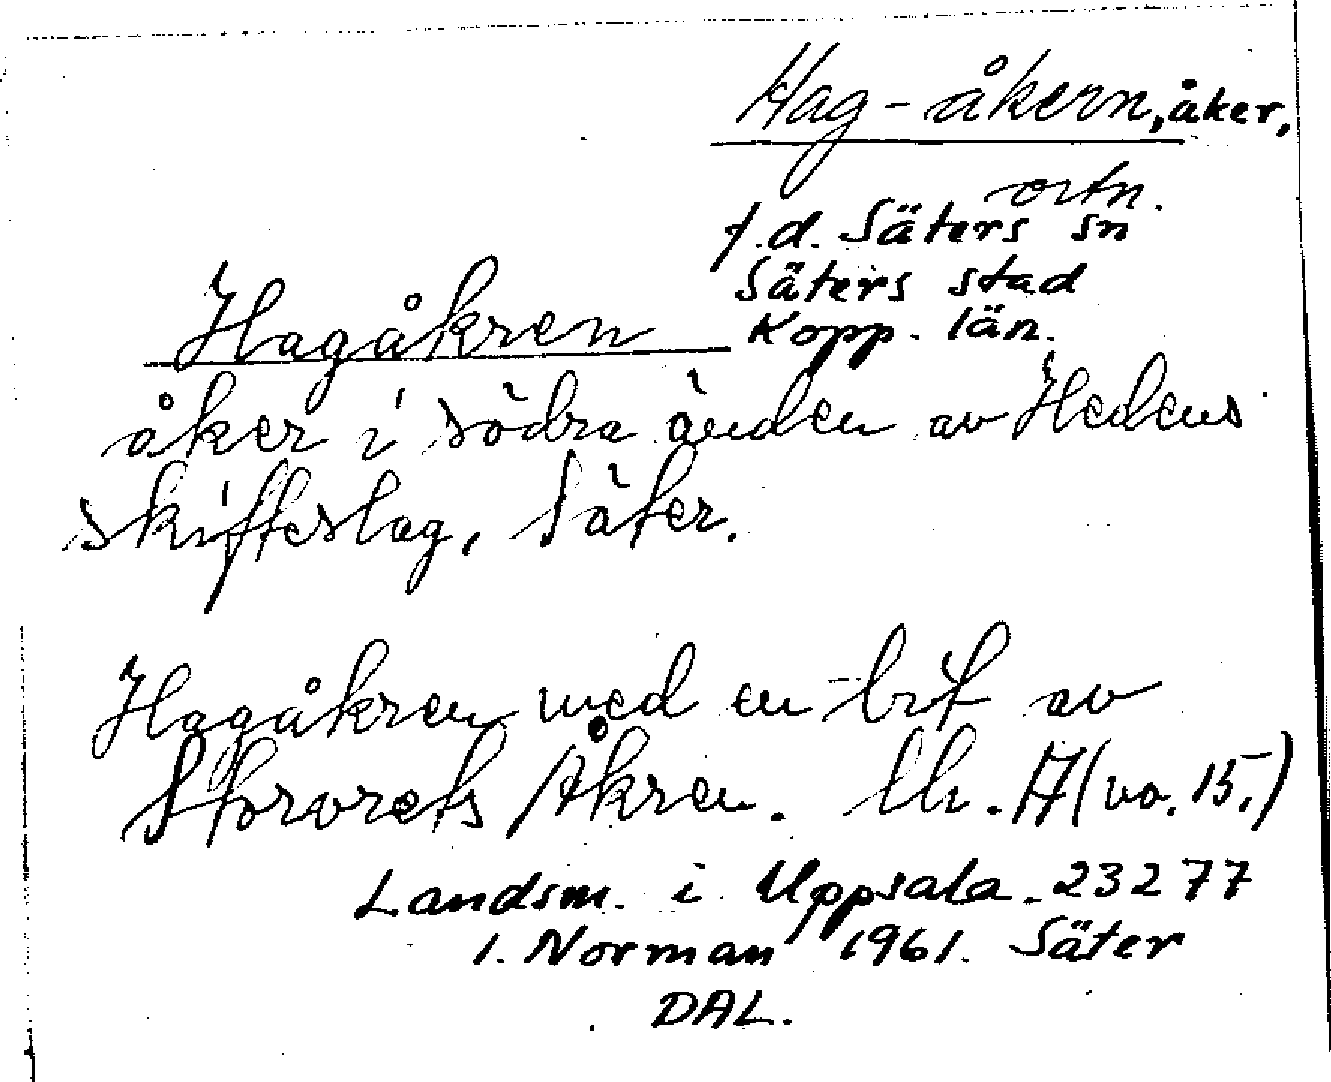 Hag-åkern, åker,
ortn.
f.d. Säters sn
Säters stad
Kopp. län.
Hagåkren
åker i södra änden av Hedens
skifteslag, Säter.
Hagåkren med en bit av
Storvrets Åkren. A (va. 15.)
Landsm. i Uppsala. 23277
I. Norman 1961. Säter
DAL.